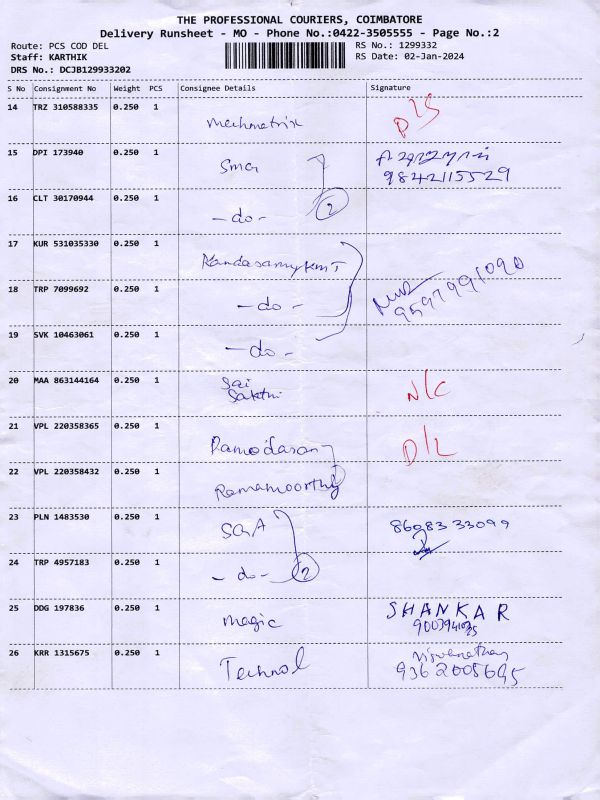 THE PROFESSIONAL COURIERS, COIMBATORE
Delivery Runsheet - MO - Phone No.:0422-3505555 - Page No.:2
Route: PCS COD DEL
RS No.: 1299332
Staff: KARTHIK
RS Date: 02-Jan-2024
DRS No.: DCJB129933202
S No Consignment No Weight PCS Consignee Details Signature
14 TRZ 310588335 0.250 1 mechmetrix
15 DPI 173940 0.250 1 Sma 9842115529
16 CLT 30170944 0.250 1 -do- 2
17 KUR 531035330 0.250 1 Kandasamy KMT
18 TRP 7099692 0.250 1 -do- 9597991090
19 SVK 10463061 0.250 1 -do-
20 MAA 863144164 0.250 1 Sai Sakthi N/C
21 VPL 220358365 0.250 1 Damodaran D/L
22 VPL 220358432 0.250 1 Ramamoorthy
23 PLN 1483530 0.250 1 SGA 86083 33099
24 TRP 4957183 0.250 1 -do- 2
25 DDG 197836 0.250 1 magic SHANKAR
26 KRR 1315675 0.250 1 Technol Viswanathan
9362005695